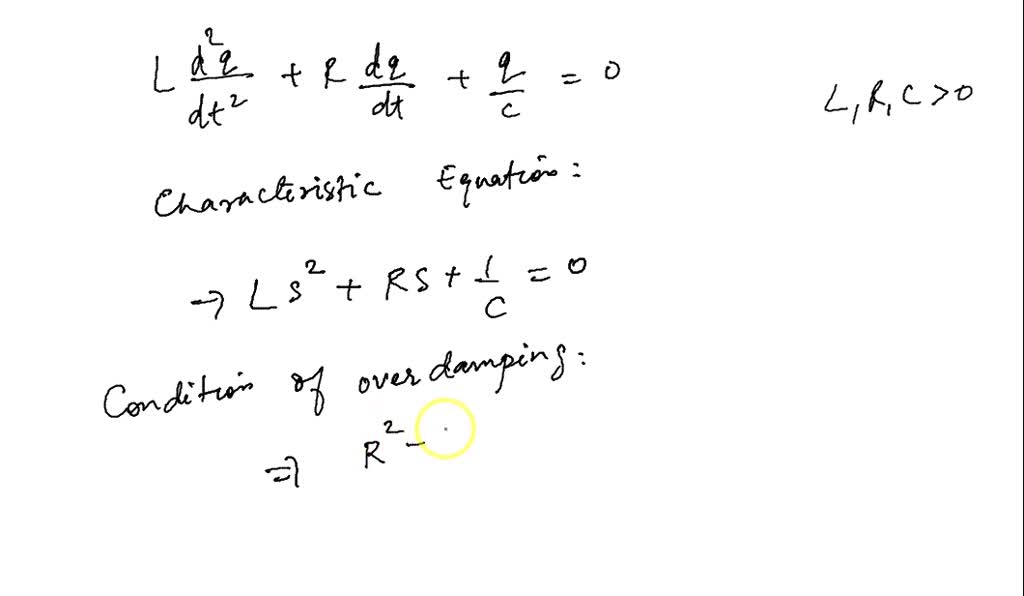 L d²q/dt² + R dq/dt + q/c = 0
L, R, C > 0
Characteristic Equation:
→ L s² + RS + 1/C = 0
Condition of over damping:
⇒ R² -